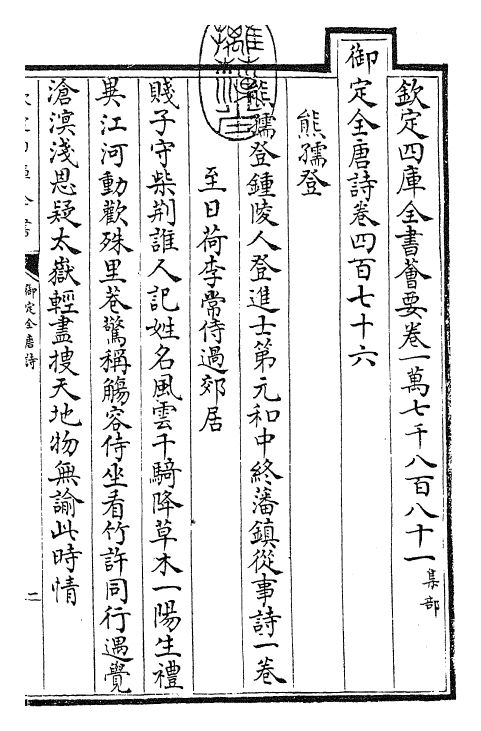 欽定四庫全書薈要卷一萬七千八百八十一 集部
御定全唐詩卷四百七十六
熊孺登
熊孺登鍾陵人登進士第元和中終藩鎮從事詩一卷
至日荷李常侍過郊居
賤子守柴荆誰人記姓名風雲千騎降草木一陽生禮
異江河動歡殊里巷驚稱觴容侍坐看竹許同行遇覺
滄溟淺恩疑太嶽輕盡搜天地物無諭此時情
御定全唐詩